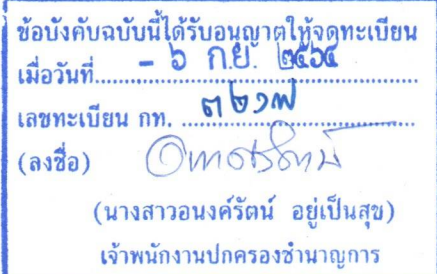 ข้อบังคับฉบับนี้ได้รับอนุญาตให้จดทะเบียน
เมื่อวันที่.... - ๖ ก.ย. ๒๕๖๔
เลขทะเบียน กท. .... ๓๒๑๗
(ลงชื่อ)
(นางสาวอนงค์รัตน์ อยู่เป็นสุข)
เจ้าพนักงานปกครองชำนาญการ